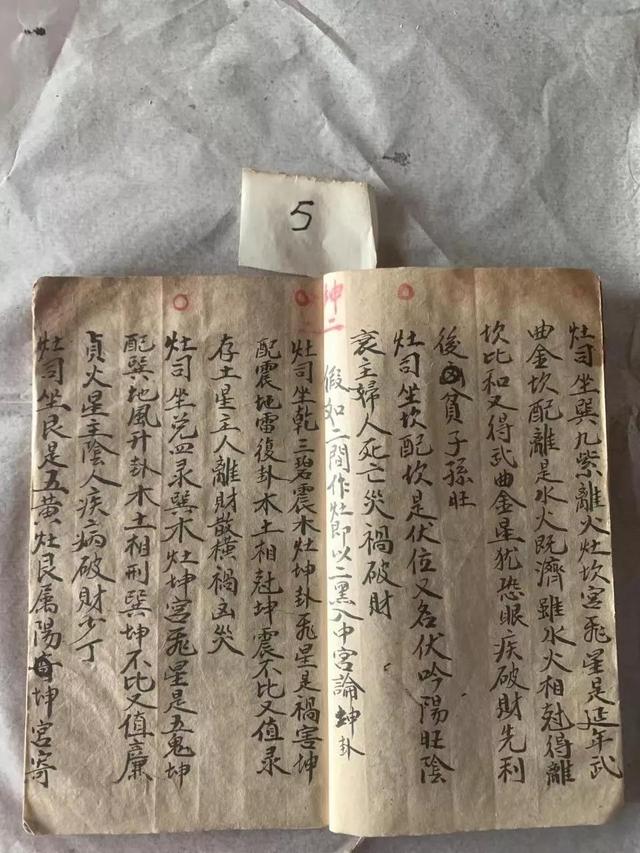 5
灶司坐巽九紫離火灶坎宮飛星是延年武
曲金坎配離是水火既濟雖水火相尅得離
坎比和又得武曲金星犹恐眼疾破財先利
後貧子孫旺
灶司坐坎配坎是伏位又名伏吟陽旺陰
衰主婦人死亡災禍破財
坤二
假如二間作灶即以二黑入中宮論坤卦
灶司坐乾三碧震木灶坤卦飛星是禍害坤
配震地雷復卦木土相尅坤震不比又值录
存土星主人離財散橫禍凶災
灶司坐兑四录巽木灶坤宮飛星是五鬼坤
配巽地風升卦木土相刑巽坤不比又值廉
貞火星主陰人疾病破財少丁
灶司坐艮是五黄灶艮属陽坤宮寄